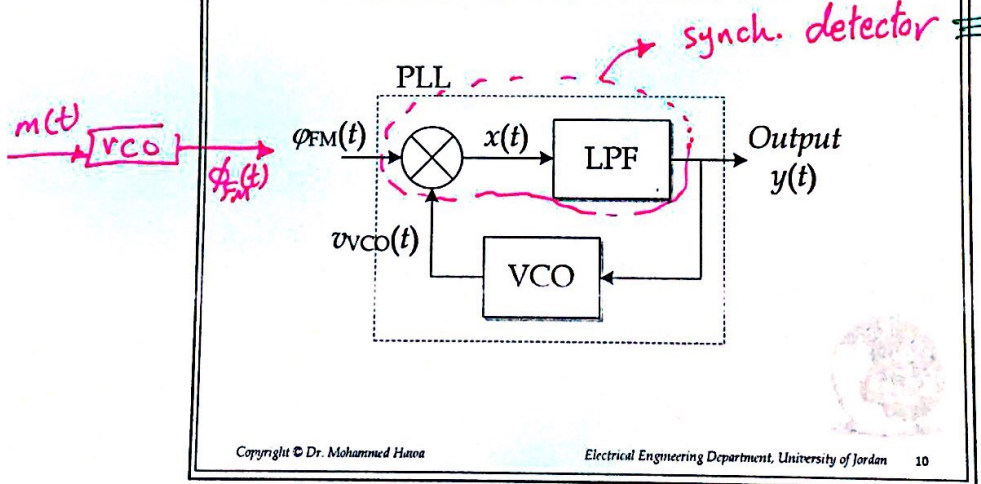 synch. detector
PLL
m(t)
VCO
φFM(t)
φFM(t)
x(t)
LPF
Output
y(t)
vVCO(t)
VCO
Copyright © Dr. Mohammed Hawa
Electrical Engineering Department, University of Jordan
10